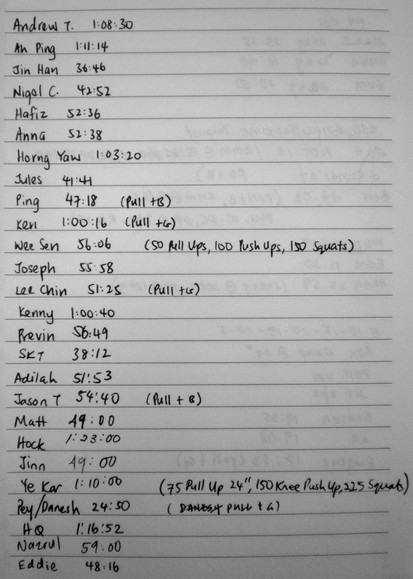 Andrew T. 1:08:30
Ah Ping 1:11:14
Jin Han 36:46
Nigel C. 42:52
Hafiz 52:36
Anna 52:38
Horng Yaw 1:03:20
Jules 41:41
Ping 47:18 (Pull +B)
Ken 1:00:16 (Pull +G)
Wee Sen 56:06 (50 Pull Ups, 100 Push Ups, 150 Squats)
Joseph 55:58
Lee Chin 51:25 (Pull +G)
Kenny 1:00:40
Previn 56:49
SKT 38:12
Adilah 51:53
Jason T 54:40 (Pull + B)
Matt 49:00
Hock 1:23:00
Jinn 49:00
Ye Kar 1:10:00 (75 Pull Up 24", 150 Knee Push Up, 225 Squats)
Pey/Danesh 24:50 (DANESH PULL + G)
HQ 1:16:52
Nazrul 59:00
Eddie 48:16